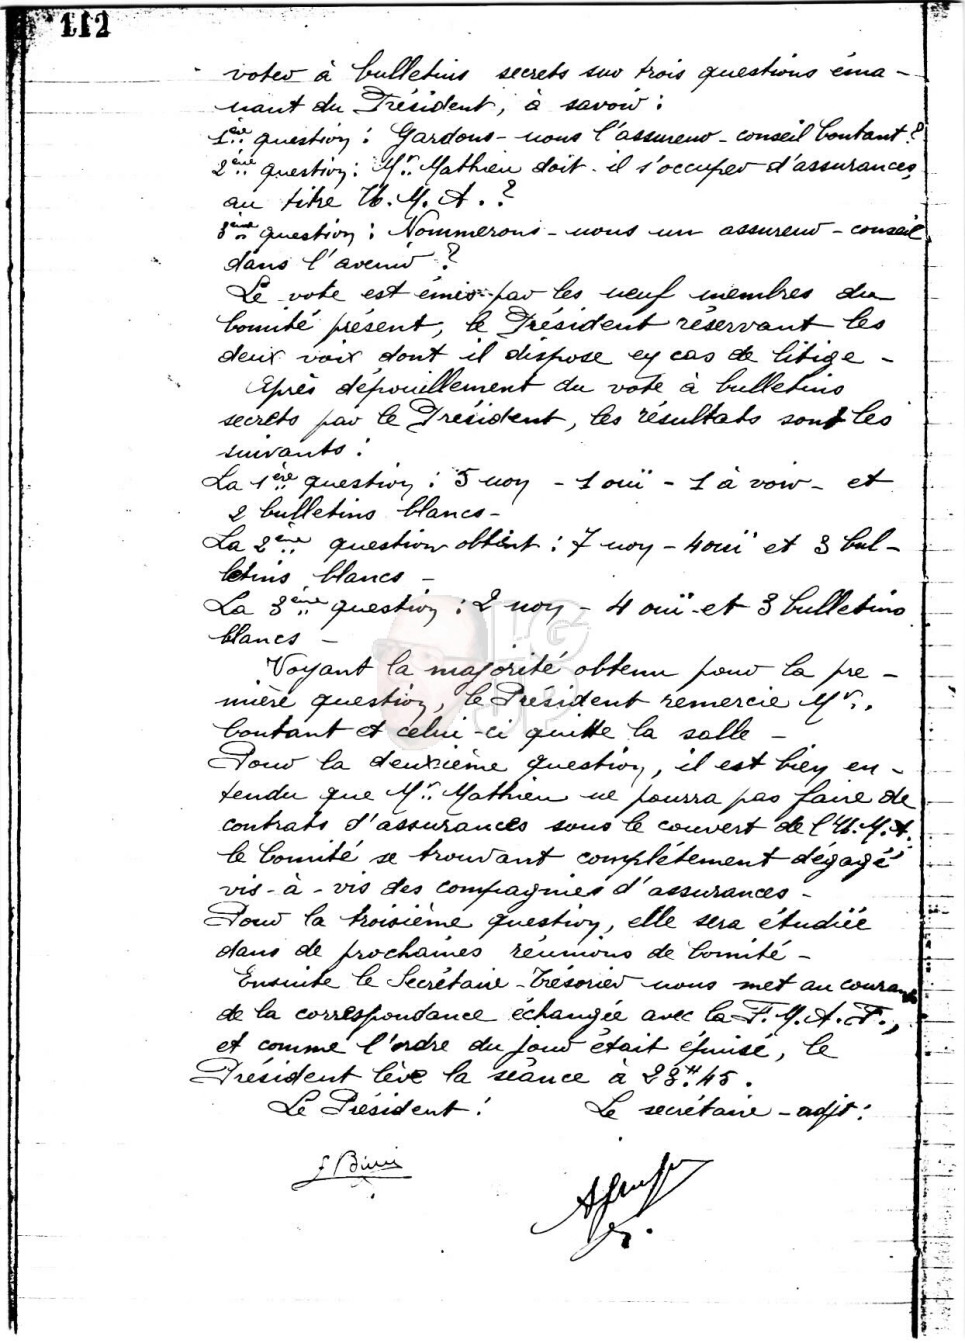 112
voter à bulletins secrets sur trois questions éma-
nant du Président, à savoir :
1ère question : Gardons-nous l'assureur-conseil Coutant ?
2ème question : Mr. Mathieu doit-il s'occuper d'assurances,
au titre U.M.A. ?
3ème question : Nommerons-nous un assureur-conseil
dans l'avenir ?
Le vote est émis par les neuf membres du
Comité présent, le Président réservant les
deux voix dont il dispose en cas de litige -
Après dépouillement du vote à bulletins
secrets par le Président, les résultats sont les
suivants :
La 1ère question : 5 non - 1 ouï - 1 à voir - et
2 bulletins blancs -
La 2ème question obtient : 7 non - 4 ouï et 3 bul-
letins blancs -
La 3ème question : 2 non - 4 ouï - et 3 bulletins
blancs -
Voyant la majorité obtenu pour la pre-
mière question, le Président remercie Mr.
Coutant et celui-ci quitte la salle -
Pour la deuxième question, il est bien en-
tendu que Mr. Mathieu ne pourra pas faire de
contrats d'assurances sous le couvert de l'U.M.A.
le Comité se trouvant complètement dégagé
vis-à-vis des compagnies d'assurances -
Pour la troisième question, elle sera étudiée
dans de prochaines réunions de Comité -
Ensuite le Secrétaire-Trésorier nous met au courant
de la correspondance échangée avec la F.M.A.F.,
et comme l'ordre du jour était épuisé, le
Président lève la séance à 23H45.
Le Président : Le secrétaire-adjt :
LG
JP